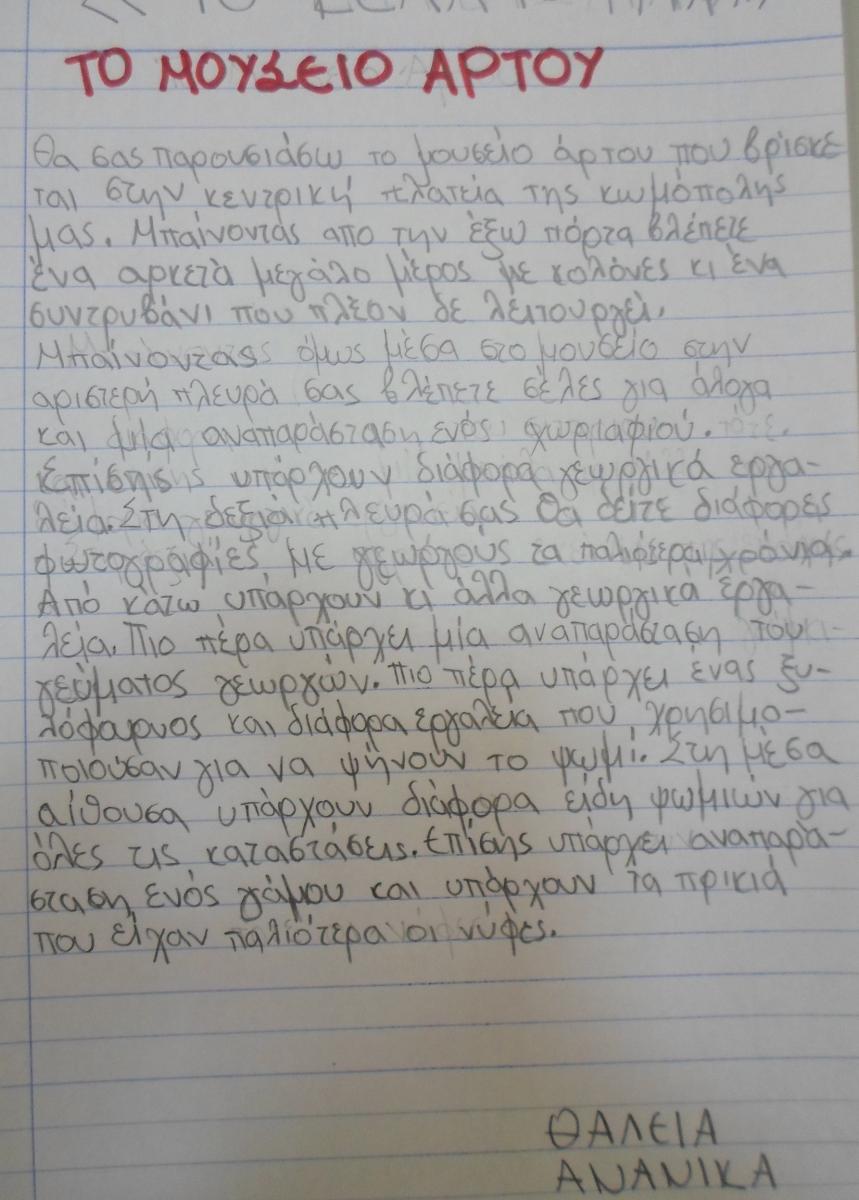 ΤΟ ΜΟΥΣΕΙΟ ΑΡΤΟΥ
Θα σας παρουσιάσω το μουσείο άρτου που βρίσκε
ται στην κεντρική πλατεία της κωμόπολης
μας. Μπαίνοντας απο την έξω πόρτα βλέπετε
ένα αρκετά μεγάλο μέρος με κολόνες κι ένα
συντριβάνι που πλέον δε λειτουργεί.
Μπαίνοντας όμως μέσα στο μουσείο στην
αριστερή πλευρά σας βλέπετε σέλες για άλογα
και μία αναπαράσταση ενός χωραφιού.
Επίσης υπάρχουν διάφορα γεωργικά εργα-
λεία. Στη δεξιά πλευρά σας θα δείτε διάφορες
φωτογραφίες με γεωργούς τα παλιότερα χρόνια.
Από κάτω υπάρχουν κι άλλα γεωργικά εργα-
λεία. Πιο πέρα υπάρχει μία αναπαράσταση του
γεύματος γεωργών. Πιο πέρα υπάρχει ένας ξυ-
λόφουρνος και διάφορα εργαλεία που χρησιμο-
ποιούσαν για να ψήνουν το ψωμί. Στη μέσα
αίθουσα υπάρχουν διάφορα είδη ψωμιών για
όλες τις καταστάσεις. Επίσης υπάρχει αναπαρά-
σταση ενός γάμου και υπάρχουν τα πρικιά
που είχαν παλιότερα οι νύφες.
ΘΑΛΕΙΑ
ΑΝΑΝΙΚΑ